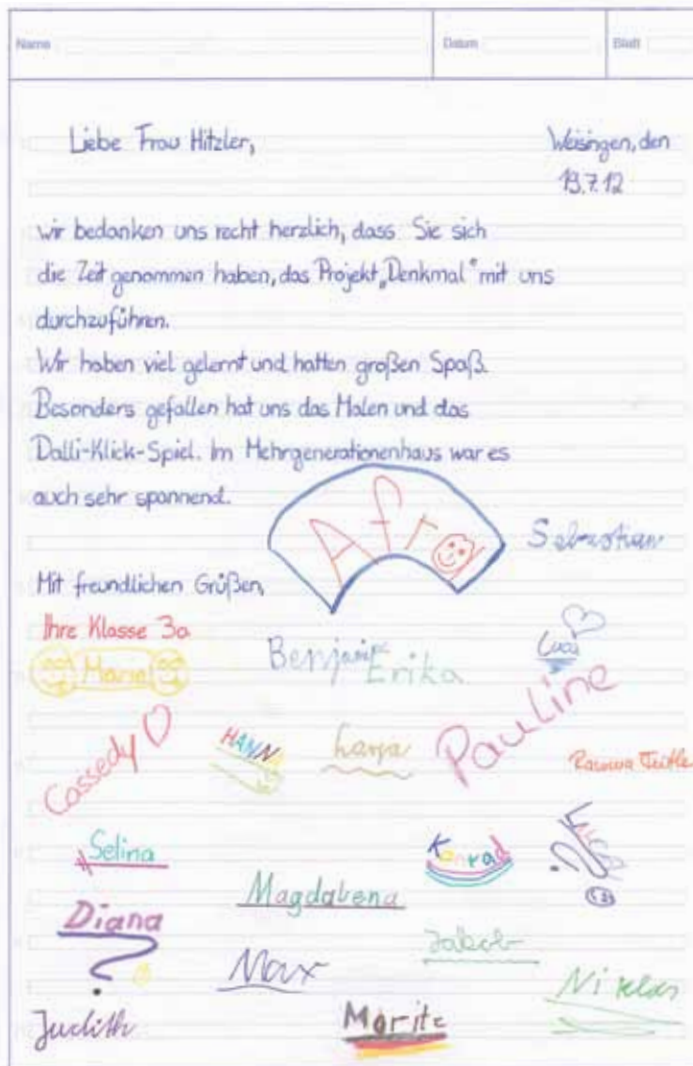 Name
Datum
Blatt
Liebe Frau Hitzler,
Weisingen, den
19.7.12
wir bedanken uns recht herzlich, dass Sie sich
die Zeit genommen haben, das Projekt „Denkmal“ mit uns
durchzuführen.
Wir haben viel gelernt und hatten großen Spaß.
Besonders gefallen hat uns das Malen und das
Dalli-Klick-Spiel. Im Mehrgenerationenhaus war es
auch sehr spannend.
Afra
Sebastian
Mit freundlichen Grüßen,
Ihre Klasse 3a
Marie
Benjamin
Erika
Luca
Cassedy
HANNA
Larja
Pauline
Selina
Konrad
Magdalena
Diana
Max
Jakob
Niklas
Judith
Moritz